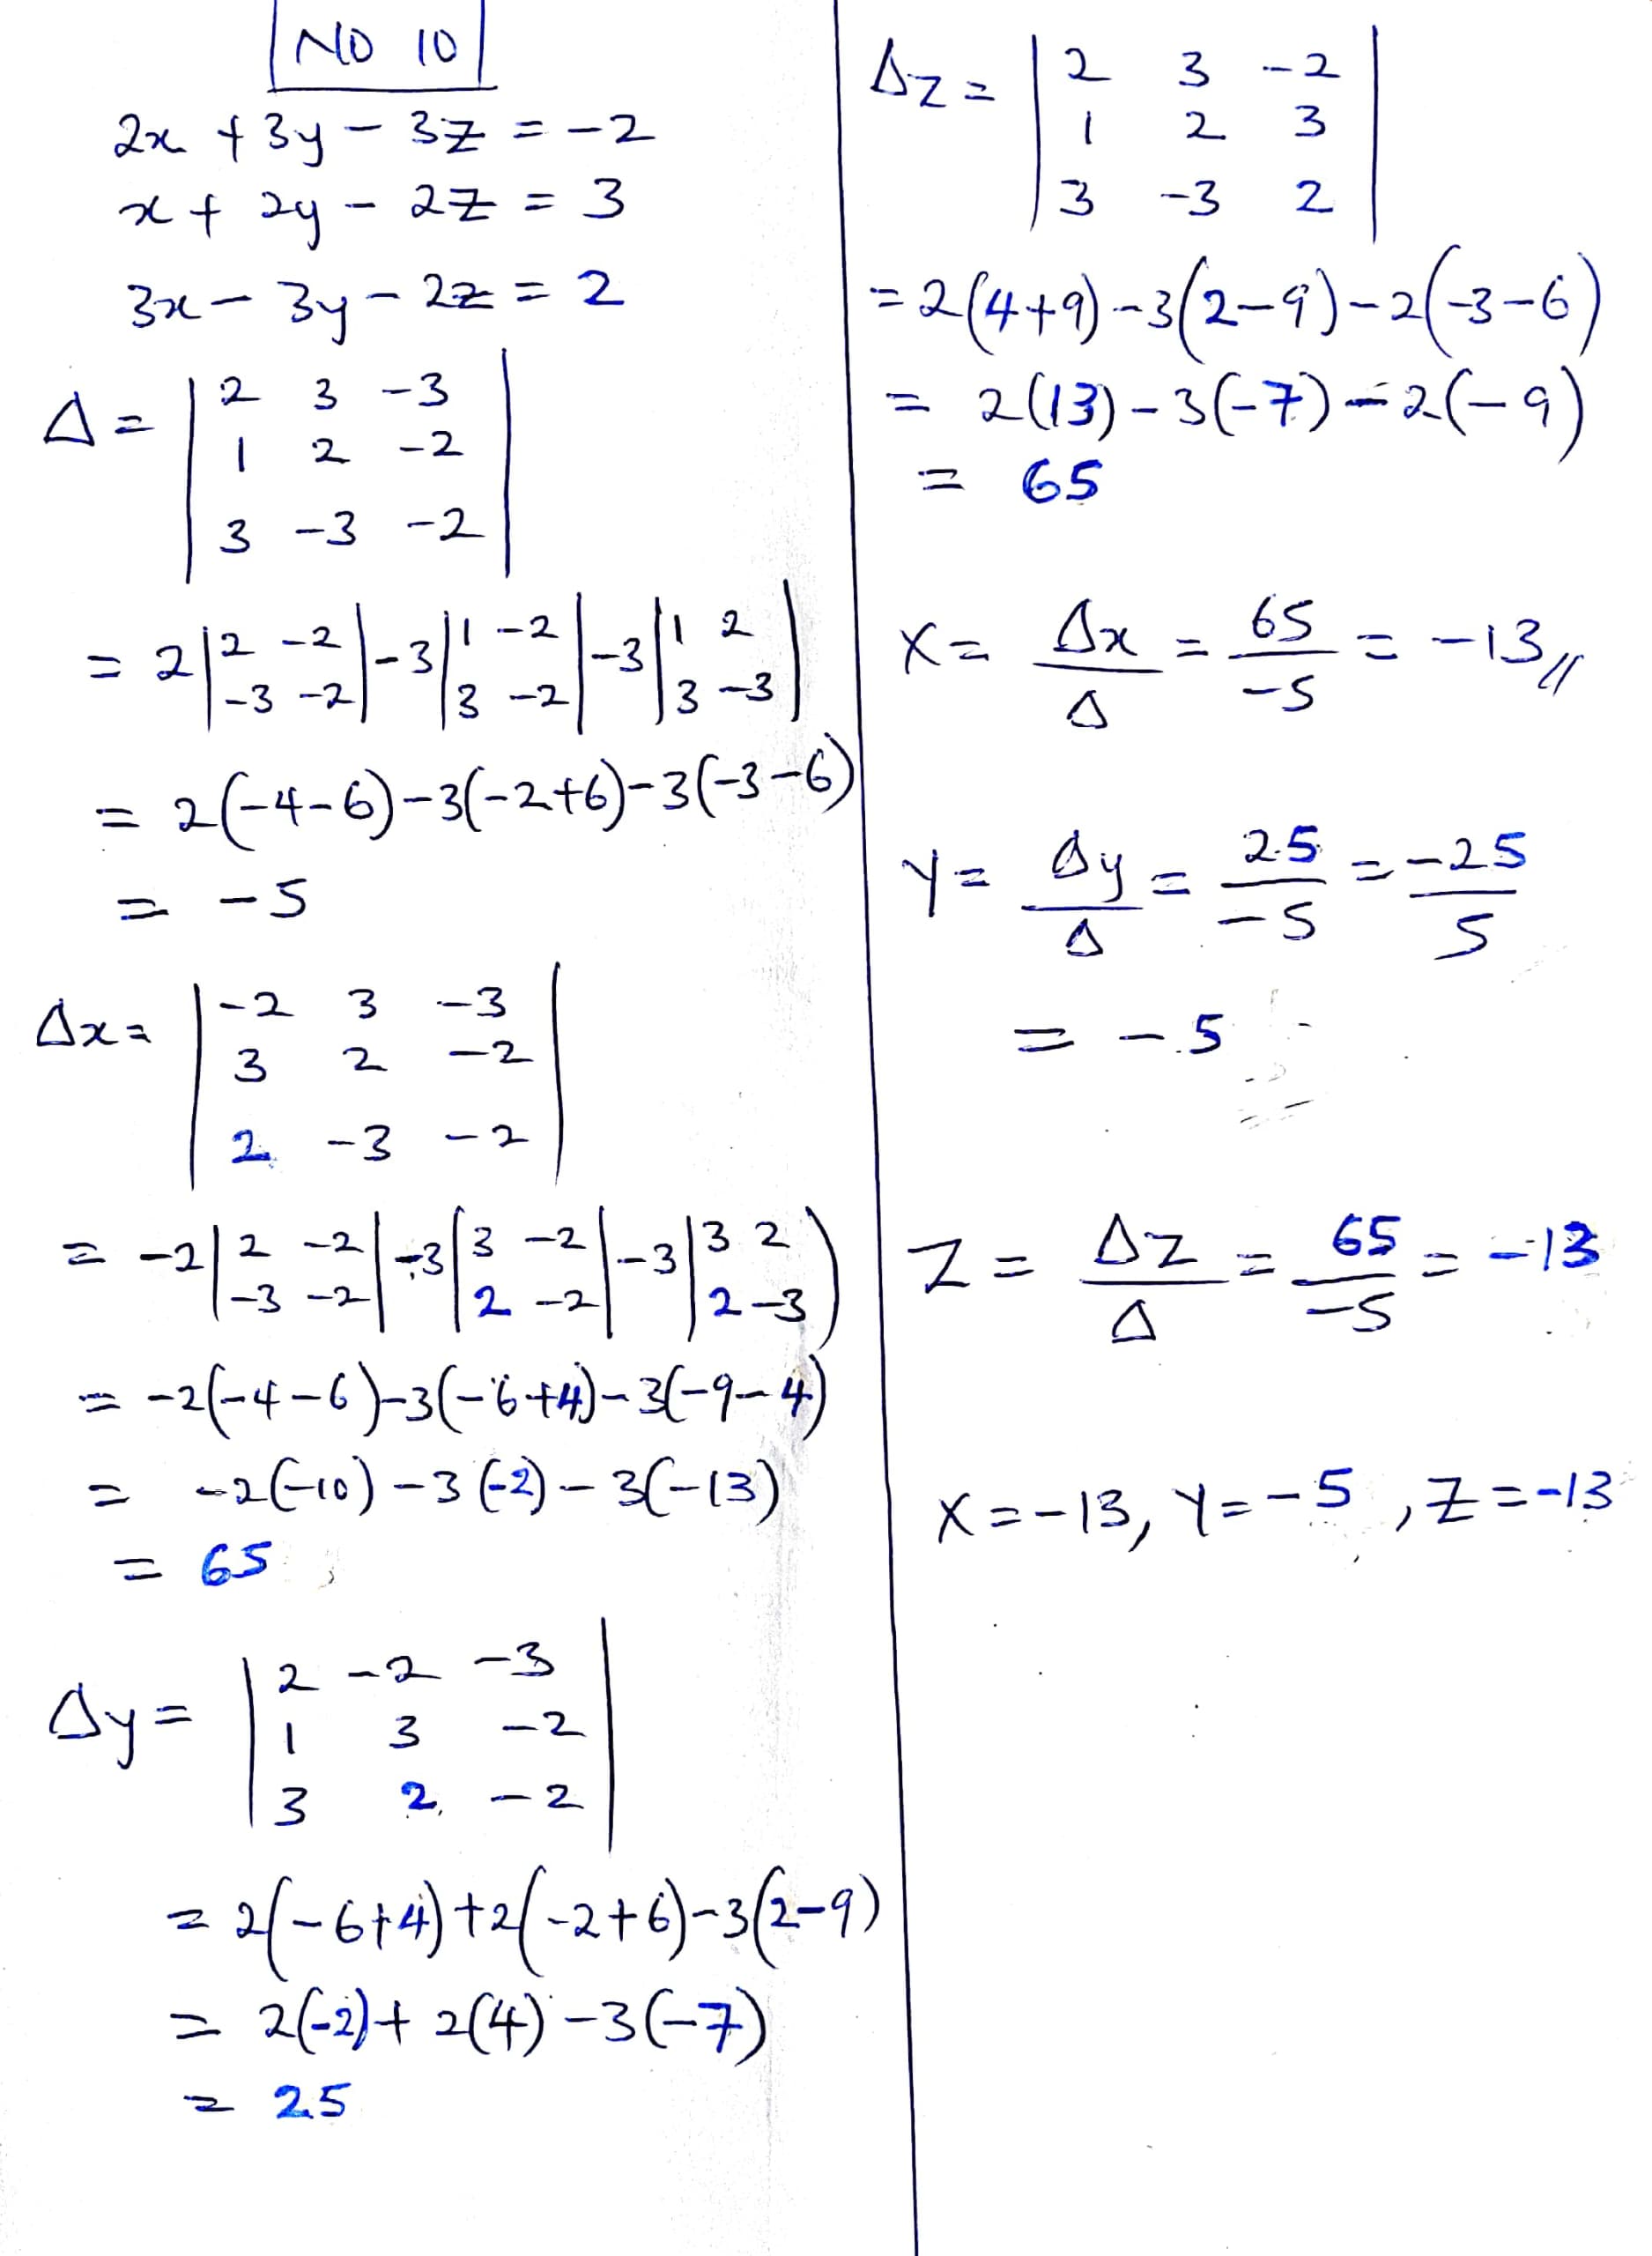 NO 10
2x + 3y - 3z = -2
x + 2y - 2z = 3
3x - 3y - 2z = 2
Δ = | 2 3 -3
1 2 -2
3 -3 -2 |
= 2 | 2 -2 | -3 | 1 -2 | -3 | 1 2 |
-3 -2 3 -2 3 -3
= 2(-4-6)-3(-2+6)-3(-3-6)
= -5
Δx = | -2 3 -3
3 2 -2
2 -3 -2 |
= -2 | 2 -2 | -3 | 3 -2 | -3 | 3 2 )
-3 -2 2 -2 2 -3
= -2(-4-6)-3(-6+4)-3(-9-4)
= -2(-10) -3(-2) - 3(-13)
= 65
Δy = | 2 -2 -3
1 3 -2
3 2 -2 |
= 2(-6+4)+2(-2+6)-3(2-9)
= 2(-2)+ 2(4) -3(-7)
= 25
Δz = | 2 3 -2
1 2 3
3 -3 2 |
= 2(4+9)-3(2-9)-2(-3-6)
= 2(13)-3(-7)-2(-9)
= 65
X = Δx/Δ = 65/-5 = -13//
Y = Δy/Δ = 25/-5 = -25/5
= -5
Z = ΔZ/Δ = 65/-5 = -13
X = -13, Y = -5, Z = -13